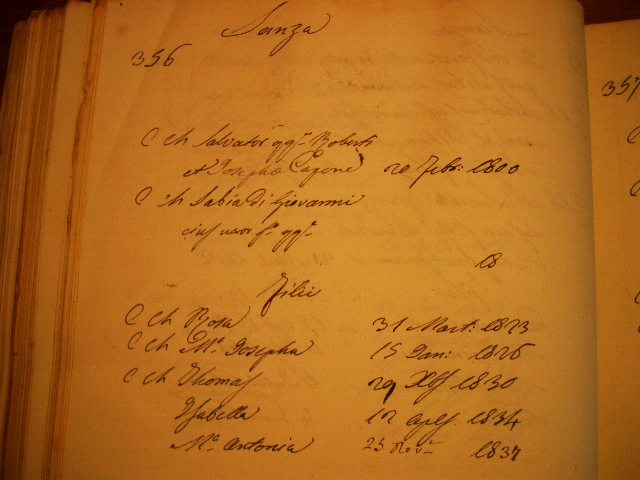 Sanza
356
357
C Ch Salvator qq.m Roberti
et Josepha Capone 20 Febr: 1800
C Ch Sabia di Giovanni
ejus uxor f.a qq.m
18
Filii
C Ch Rosa 31 Mart: 1823
C Ch M.a Josepha 15 Jan: 1826
C Ch Thomas 29 Xbs 1830
Ysabella 12 Apls 1834
M.a Antonia 23 Nov. 1837